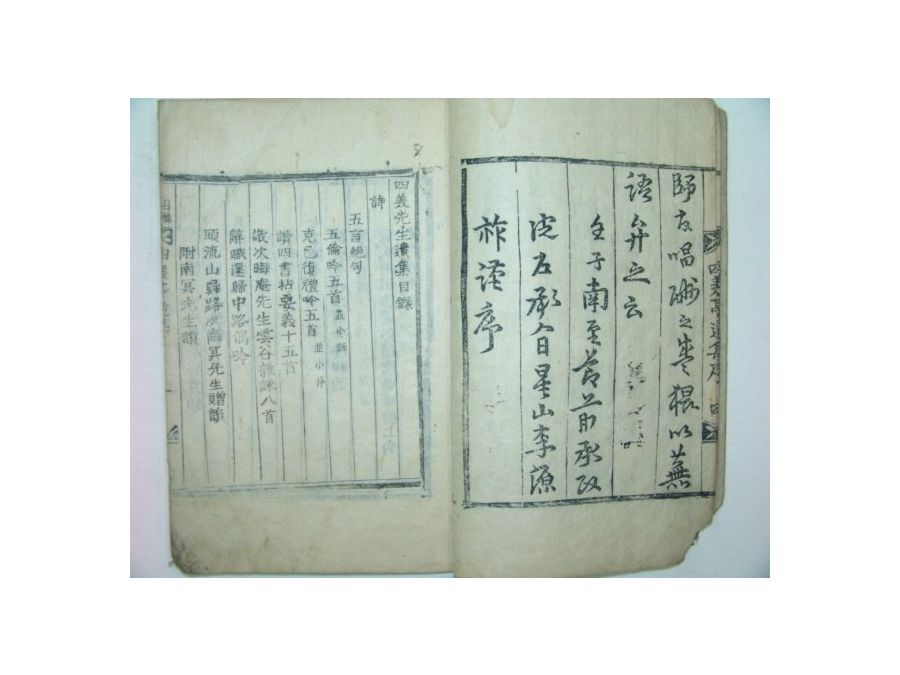 師友唱酬之盛猥以蕪
語弁之云
壬子南至前承政
院右承旨星山李源
祚謹序
四美亭遺集序 四
四美先生遺集目錄
詩
五言絶句
五倫吟五首 並小叙
克己復禮吟五首 並小序
讀四書拈要義十五首
敬次晦庵先生雲谷雜詠八首
解職還歸中路偶吟
頭流山歸路次南冥先生贈韻
附南冥先生韻